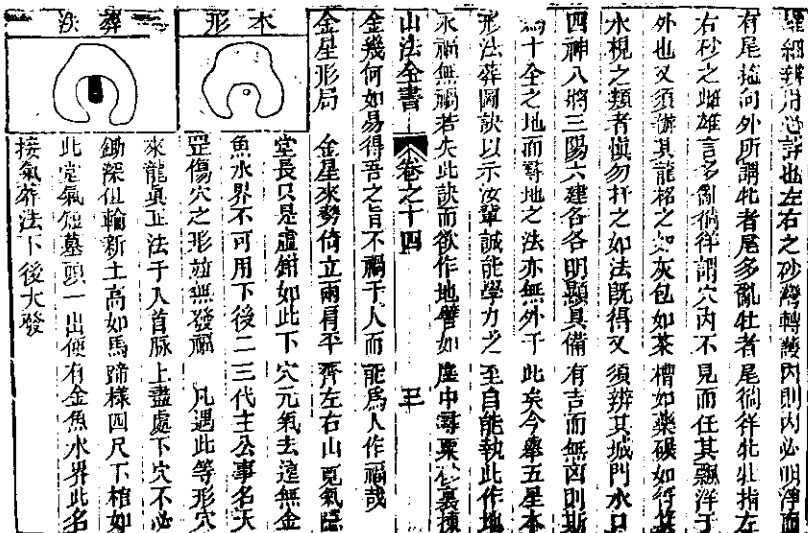 細辨用心詳也左右之砂灣轉護內則內必明淨而
有尾拖向外所謂牝者尾多亂牡者尾徜徉牝牡指左
右砂之雌雄言多亂徜徉謂穴內不見而任其飄洋于
外也又須辦其龍格之如灰包如菜槽如藥碾如行
水梘之類者慎勿扦之如法既得又須辨其城門水口
四神八將三陽六建各各明顯具備有吉而無凶則斯
為十全之地而尋地之法亦無外于此矣今舉五星本
形法葬圖訣以示汝輩誠能學力之至自能執此作地
永福無禍若失此訣而欲作地譬如塵中尋粟裏揀
金幾何如易得吾之旨不禍于人而能為人作福哉
山法全書
卷之十四
三
金星形局
金星來勢倚立兩肩平齊左右山寬氣隱
堂長只是虛鉗如此下穴元氣去遠無金
魚水界不可用下後二三代主公事名天
罡傷穴之形並無發福
凡遇此等形穴
來龍真正法于入首脉上盡處下穴不必
鋤深但輪新土高如馬蹄樣四尺下棺如
此堂氣短墓頭一出便有金魚水界此名
接氣葬法下後大發
形本
葬法